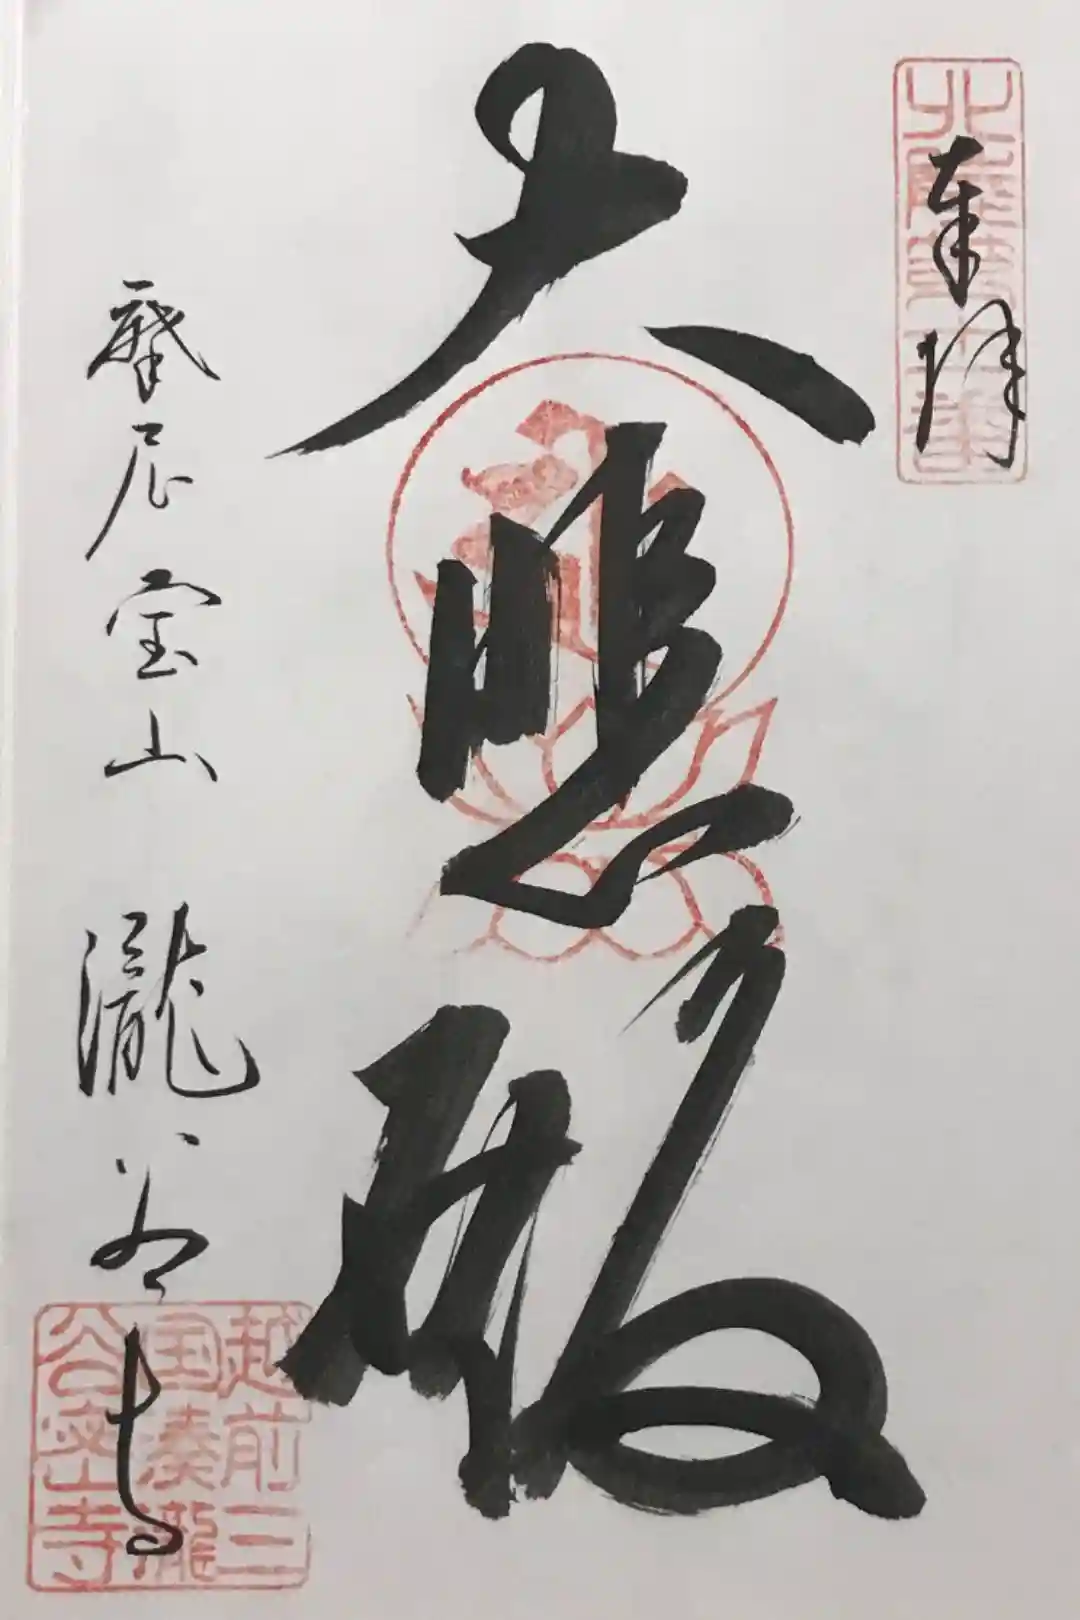 奉拝
大悲殿
摩尼宝山 瀧谷寺
越前三
国湊瀧
谷密寺